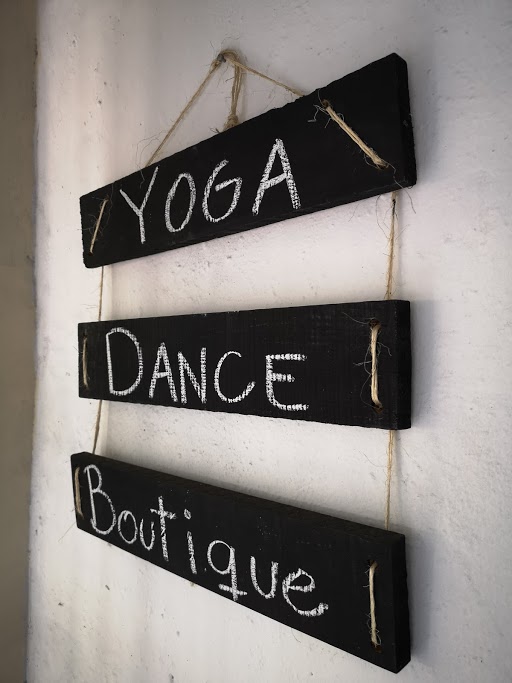 YOGA
DANCE
Boutique